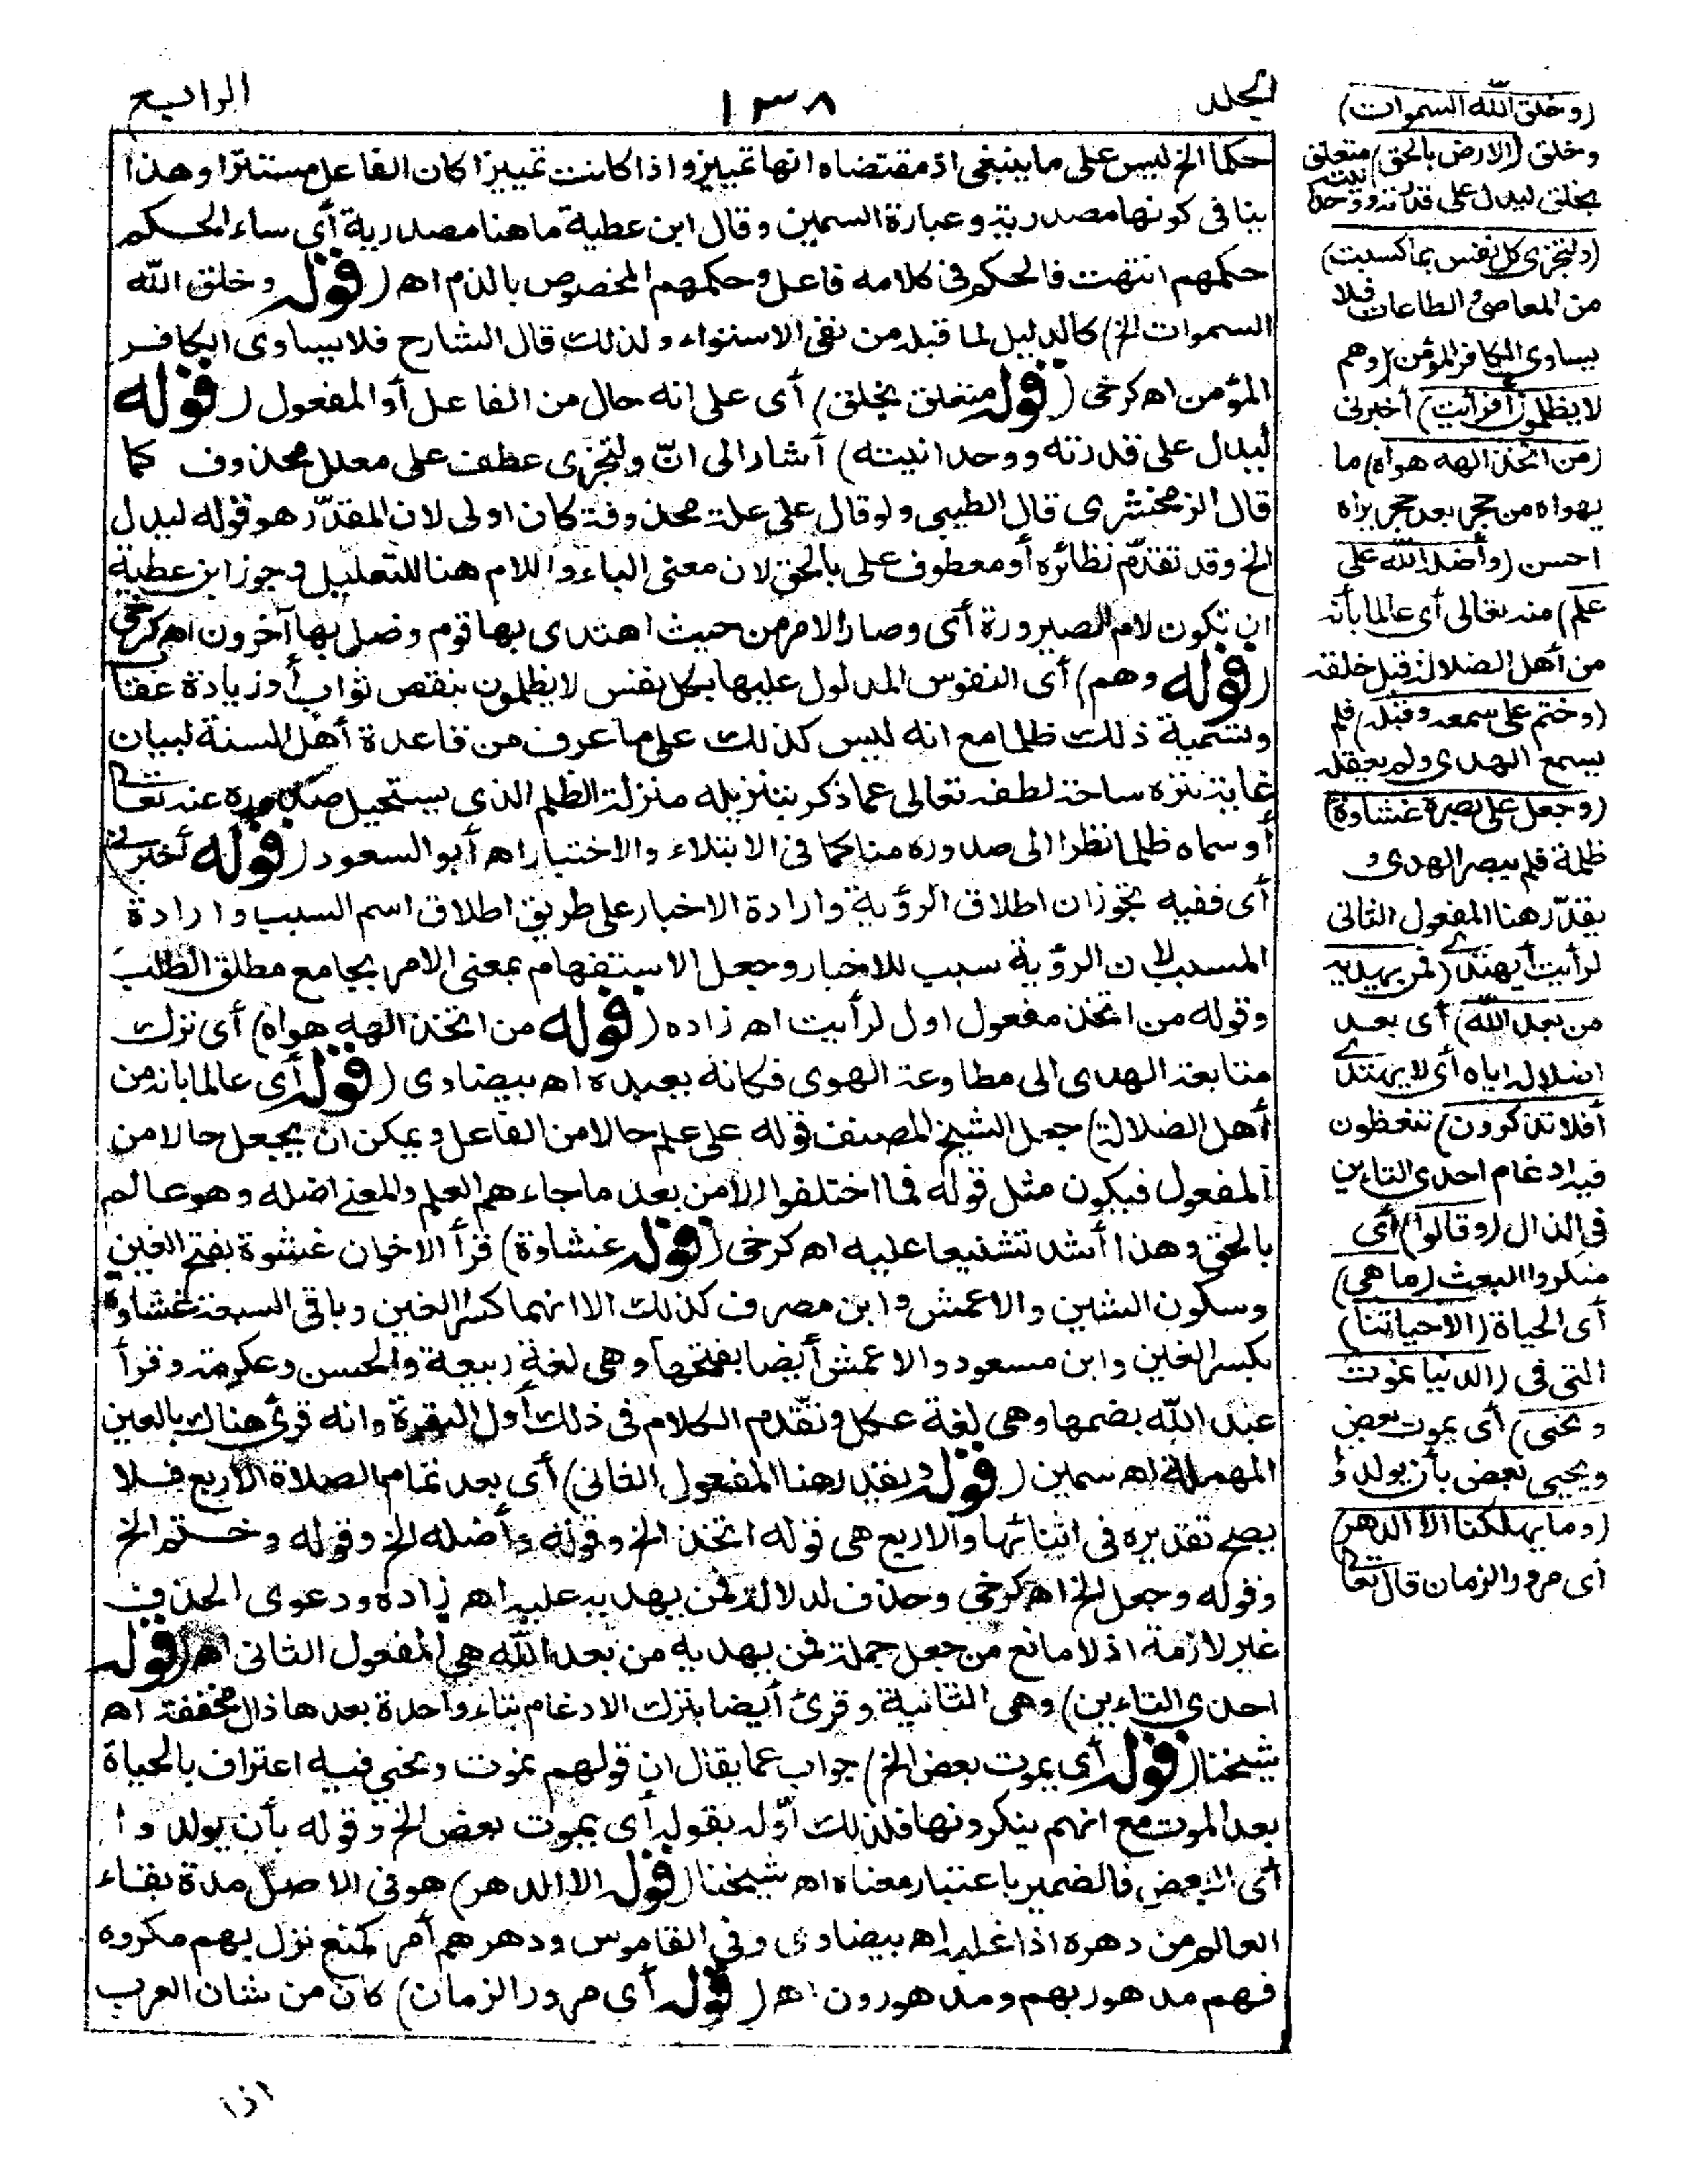 الجلد
١٣٨
الرابع
حكما الخ ليس على ما ينبغى اذ مقتضاه انها تمييز واذا كانت تمييزا كان الفاعل مستترا وهذا
ينافى كونها مصدرية وعبارة السمين وقال ابن عطية ما هنا مصدرية أى ساء الحكم
حكمهم انتهت فالحكم فى كلامه فاعل وحكمهم المخصوص بالذم اه (قوله وخلق الله
السموات الخ) كالدليل لما قبله من نفى الاستواء ولذلك قال الشارح فلا يساوى الكافر
المؤمن اه كرخى (قوله متعلق بخلق) أى على انه حال من الفاعل أو المفعول (قوله
ليدل على قدرته ووحدانيته) أشار الى انّ ولتجزى عطف على معلل محذوف كما
قال الزمخشرى قال الطيبى ولو قال على علة محذوفة كان اولى لان المقدّر هو قوله ليدل
الخ وقد تقدّم نظائره أو معطوف على بالحق لان معنى الباء واللام هنا للتعليل وجوز ابن عطية
ان تكون لام الصيرورة أى وصار الامر من حيث اهتدى بها قوم وضل بها آخرون اه كرخى
(قوله وهم) أى النفوس المدلول عليها بكل نفس لا يظلمون بنقص ثواب أو زيادة عقاب
وتسمية ذلك ظلما مع انه ليس كذلك على ما عرف من قاعدة أهل السنة لبيان
غاية تنزه ساحة لطفه تعالى عما ذكر بتنزيله منزلة الظلم الذى يستحيل صدوره عنه تعالى
أو سماه ظلما نظرا الى صدوره منا كما فى الابتلاء والاختبار اه أبو السعود (قوله أخبرنى)
أى ففيه تجوزان اطلاق الرؤية وارادة الاخبار على طريق اطلاق اسم السبب وارادة
المسبب لان الرؤية سبب للاخبار وجعل الاستفهام بمعنى الامر بجامع مطلق الطلب
وقوله من اتخذ مفعول اول لرأيت اه زاده (قوله من اتخذ الهه هواه) أى ترك
متابعة الهدى الى مطاوعة الهوى فكانه يعبده اه بيضاوى (قوله أى عالما بانه من
أهل الضلالة) جعل الشيخ المصنف قوله على علم حالا من الفاعل ويمكن ان يجعل حالا من
المفعول فيكون مثل قوله فما اختلفوا الا من بعد ما جاءهم العلم والمعنى اضله وهو عالم
بالحق وهذا أشد تشنيعا عليه اه كرخى (قوله غشاوة) قرأ الاخوان غشوة بفتح الغين
وسكون الشين والاعمش وابن مصرف كذلك الا انهما كسرا الغين وباقى السبعة غشاوة
بكسر الغين وابن مسعود والاعمش أيضا بفتحها وهى لغة ربيعة والحسن وعكرمة وقرأ
عبد الله بضمها وهى لغة عكل وتقدّم الكلام فى ذلك أول البقرة وانه قرئ هناك بالعين
المهملة اه سمين (قوله ويقدر هنا المفعول الثانى) أى بعد تمام الصلاة الاربع فلا
يصح تقديره فى اثنائها والاربع هى قوله اتخذ الخ وقوله وأضله الخ وقوله وختم الخ
وقوله وجعل الخ اه كرخى وحذف لدلالة فمن يهديه عليه اه زاده ودعوى الحذف
غير لازمة اذ لا مانع من جعل جملة فمن يهديه من بعد الله هى المفعول الثانى اه (قوله
احدى التاءين) وهى الثانية وقرئ أيضا بترك الادغام بتاء واحدة بعدها ذال مخففة اه
شيخنا (قوله أى يموت بعض الخ) جواب عما يقال ان قولهم نموت ونحيى فيه اعتراف بالحياة
بعد الموت مع انهم ينكرونها فلذلك أوّله بقوله أى يموت بعض الخ وقوله بأن يولدوا
أى البعض فالضمير باعتبار معناه اه شيخنا (قوله الا الدهر) هو فى الاصل مدة بقاء
العالم من دهره اذا غلبه اه بيضاوى وفى القاموس ودهرهم أمر كمنع نزل بهم مكروه
فهم مدهور بهم ومدهورون اه (قوله أى مرور الزمان) كان من شان العرب
اذا
(وخلق الله السموات)
وخلق (الارض بالحق) متعلق
بخلق ليدل على قدرته ووحدانيته
(ولتجزى كل نفس بما كسبت)
من المعاصى والطاعات فلا
يساوى الكافر المؤمن (وهم
لا يظلمون أفرأيت) أخبرنى
(من اتخذ الهه هواه) ما
يهواه من حجر بعد حجر يراه
احسن (وأضله الله على
علم) منه تعالى أى عالما بأنه
من أهل الضلالة قبل خلقه
(وختم على سمعه وقلبه) فلم
يسمع الهدى ولم يعقله
(وجعل على بصره غشاوة)
ظلمة فلم يبصر الهدى و
يقدّر هنا المفعول الثانى
لرأيت أيهتدى (فمن يهديه
من بعد الله) أى بعد
اضلاله اياه أى لا يهتدى
أفلا تذكرون) تتعظون
فيه ادغام احدى التاءين
فى الذال (وقالوا) أى
منكروا البعث (ما هى)
أى الحياة (الا حياتنا)
التى فى (الدنيا نموت
ونحيى) أى يموت بعض
ويحيى بعض بأن يولدوا
(وما يهلكنا الا الدهر)
أى مرور الزمان قال تعالى